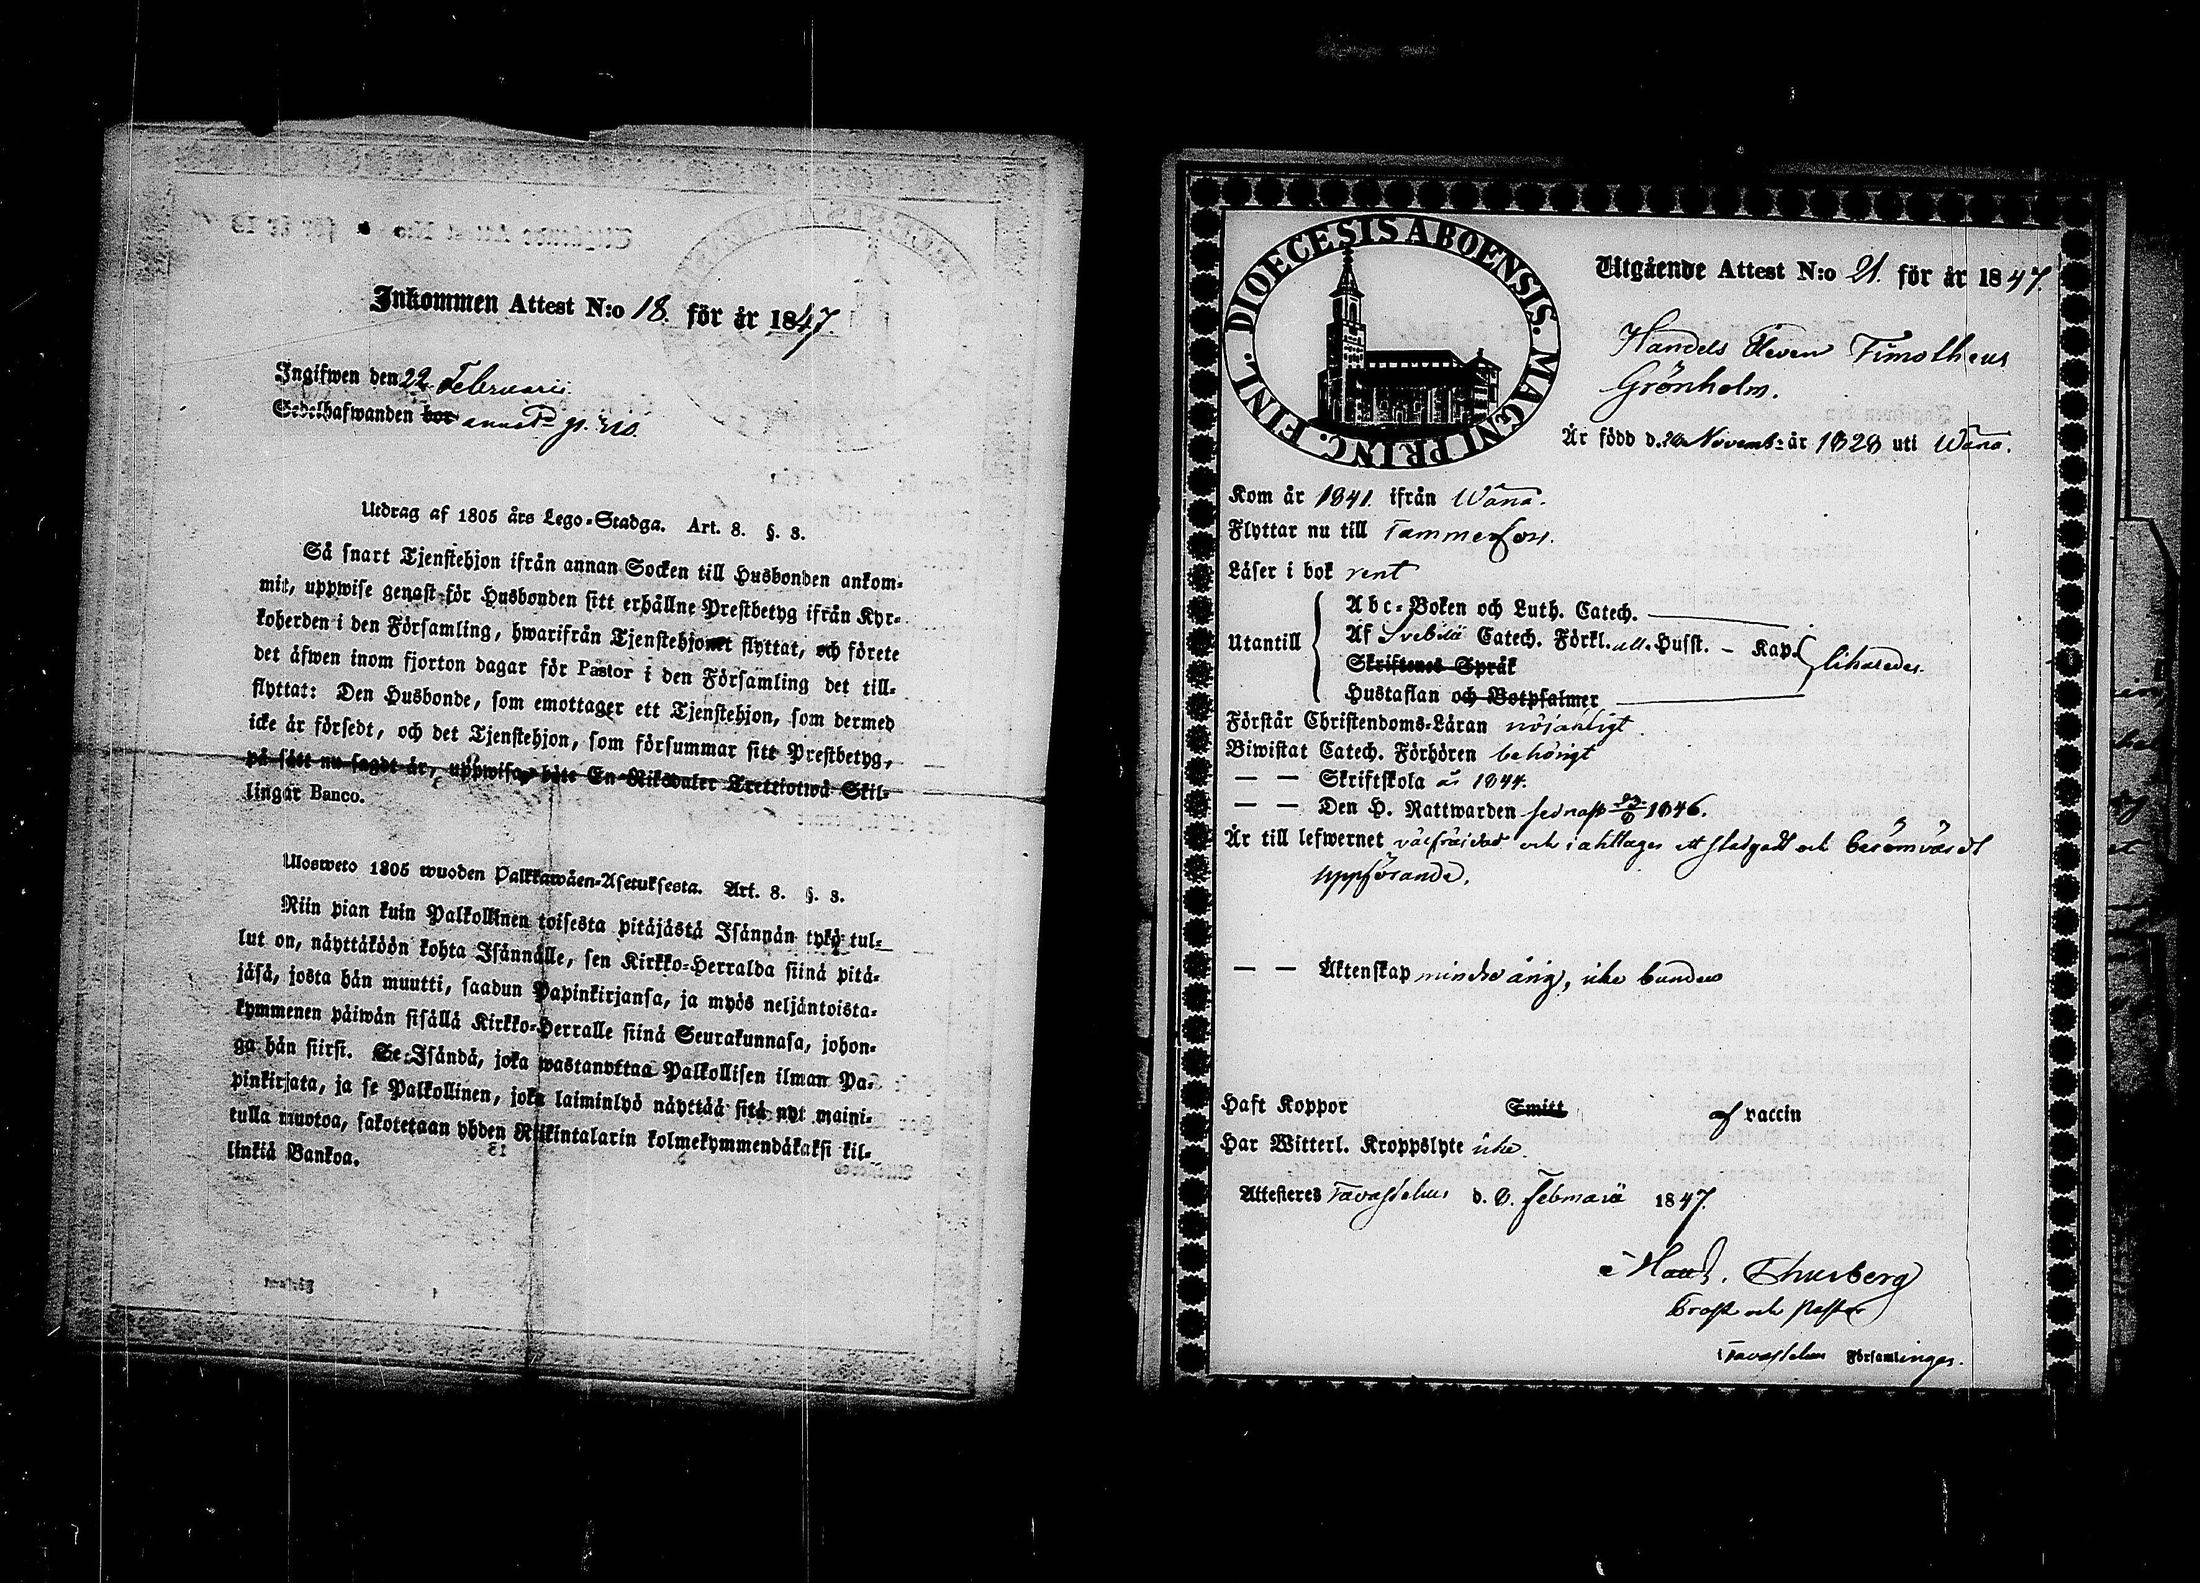 Inkommen Attest N:o 18. för år 1847.
Ingifwen den 22 Februarii.
Sedelhafwanden bor annot. p.
Utdrag af 1805 års Lego-Stadga. Art. 8. §. 3.
Så snart Tjenstehjon ifrån annan Socken till Husbonden ankom-
mit, uppwise genast för Husbonden sitt erhållne Prestbetyg ifrån Kyr-
koherden i den Församling, hwarifrån Tjenstehjonet flyttat, och förete
det äfwen inom fjorton dagar för Pastor i den Församling det till-
flyttat: Den Husbonde, som emottager ett Tjenstehjon, som dermed
icke är försedt, och det Tjenstehjon, som försummar sitt Prestbetyg,
på sätt nu sagdt är, uppwisa, böte En Riksdaler Trettiotwå Skil-
lingar Banco.
Ulosweto 1805 wuoden Palkkawäen-Asetuksesta. Art. 8. §. 3.
Niin pian kuin Palkollinen toisesta pitäjästä Isännän tykö tul-
lut on, näyttäköön kohta Isännälle, sen Kirkko-Herralda siinä pitä-
jäsä, josta hän muutti, saadun Papinkirjansa, ja myös neljäntoista-
kymmenen päiwän sisällä Kirkko-Herralle siinä Seurakunnasa, johon-
ga hän siirsi. Se Isändä, joka wastanottaa Palkollisen ilman Pa-
pinkirjata, ja se Palkollinen, joka laiminlyö näyttää sitä nyt maini-
tulla muotoa, sakotetaan yhden Riikintalarin kolmekymmendäkaksi kil-
linkiä Bankoa.
FINL. DIOECESIS ABOENSIS. MAGNI PRINC.
Utgående Attest N:o 21. för år 1847.
Handels Eleven Timotheus
Grönholm.
Är född d. Novemb: år 1828 uti Wånå.
Kom år 1841. ifrån Wånå.
Flyttar nu till Tammerfors.
Läser i bok rent
Abc-Boken och Luth. Catech.
Utantill Af Svebilii Catech. Förkl. all. Husst. - Kap. likaledes.
Skriftenes Språk
Hustaflan och Botpsalmer
Förstår Christendoms-Läran nöjaktigt
Biwistat Catech. Förhören behörigt
— — Skriftskola år 1844.
— — Den H. Nattwarden sednast 1846.
Är till lefwernet välfräjdad och iakttager ett stadgadt och berömvärdt
uppförande.
— — Äktenskap minderårig, icke bunden
Haft Koppor Smitt af vaccin
Har Witterl. Kroppslyte icke.
Attesteres Tavastehus d. 9. Februarii 1847.
Thusberg
Prost och Pastor
i Tavastehus Församlingar.